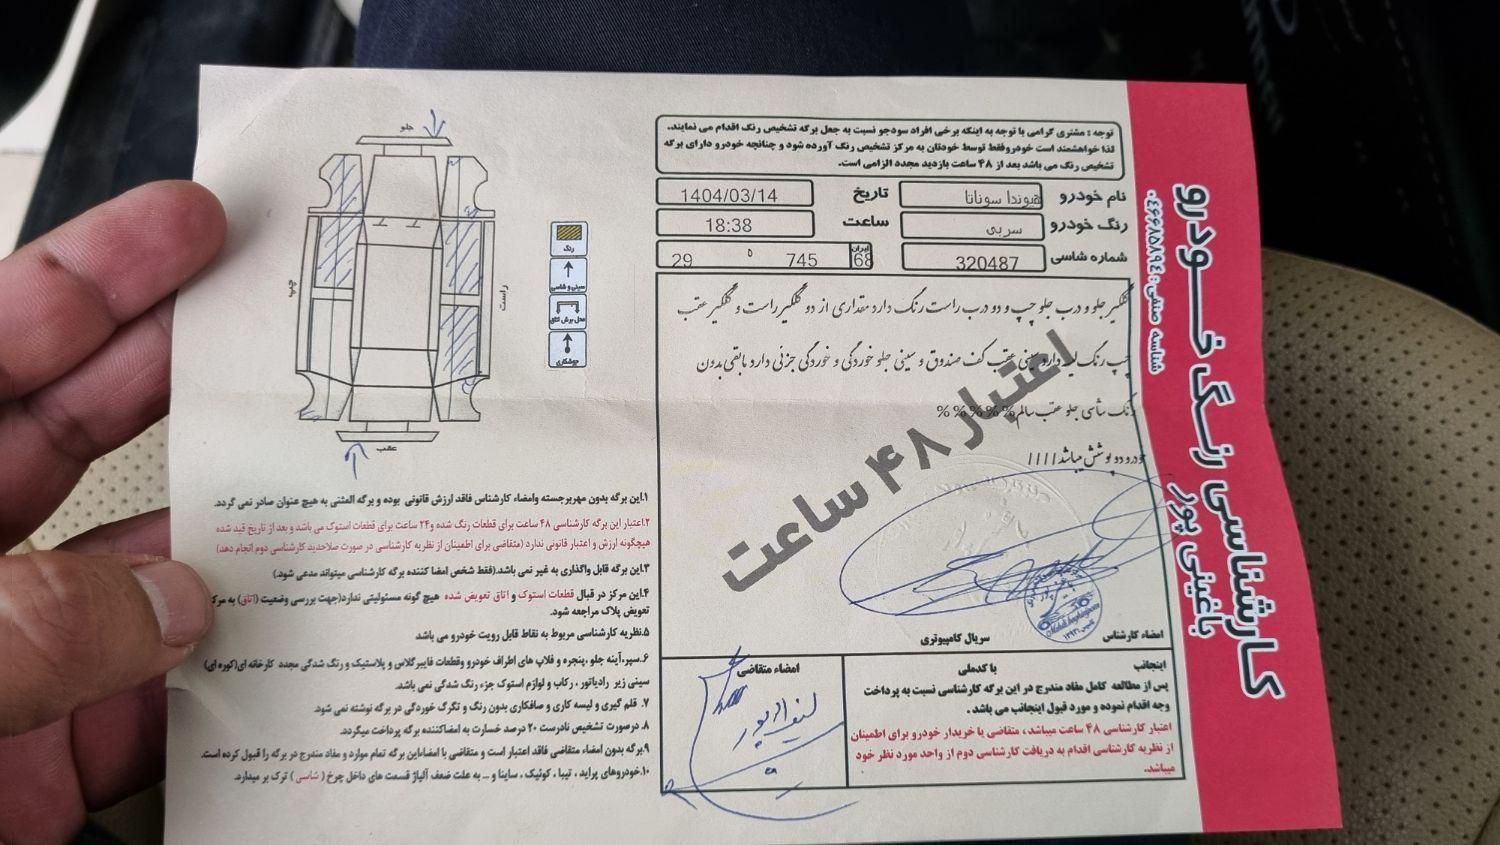 کارشناسی رنگ خودرو
باغینی پور
شناسه صنفی : ۰۴۶۶۸۵۸۹۴
توجه : مشتری گرامی با توجه به اینکه برخی افراد سودجو نسبت به جعل برگه تشخیص رنگ اقدام می نمایند.
لذا خواهشمند است خودروفقط توسط خودتان به مرکز تشخیص رنگ آورده شود و چنانچه خودرو دارای برگه
تشخیص رنگ می باشد بعد از ۴۸ ساعت بازدید مجدد الزامی است.
نام خودرو هیوندا سوناتا تاریخ 1404/03/14
رنگ خودرو سربی ساعت 18:38
شماره شاسی 320487 ایران 68 745 29
گلگیر جلو و درب جلو چپ و دو درب راست رنگ دارد مقداری از دو گلگیر راست و گلگیر عقب
چپ رنگ لیسه دارد سینی عقب کف صندوق و سینی جلو خوردگی و خوردگی جزئی دارد مابقی بدون
رنگ شاسی جلو عقب سالم % % % % %
خودرو دو پوشش میباشد ۱۱۱۱
اعتبار ۴۸ ساعت
امضاء کارشناس
سریال کامپیوتری
اینجانب با کدملی
پس از مطالعه کامل مفاد مندرج در این برگه کارشناسی نسبت به پرداخت
وجه اقدام نموده و مورد قبول اینجانب می باشد .
اعتبار کارشناسی ۴۸ ساعت میباشد ، متقاضی یا خریدار خودرو برای اطمینان
از نظریه کارشناسی اقدام به دریافت کارشناسی دوم از واحد مورد نظر خود
میباشد.
امضاء متقاضی
جلو
چپ
راست
عقب
رنگ
سینی و شاسی
محل برش اتاق
جوشکاری
۱.این برگه بدون مهربرجسته وامضاء کارشناس فاقد ارزش قانونی بوده و برگه المثنی به هیچ عنوان صادر نمی گردد.
۲.اعتبار این برگه کارشناسی ۴۸ ساعت برای قطعات رنگ شده و۲۴ ساعت برای قطعات استوک می باشد و بعد از تاریخ قید شده
هیچگونه ارزش و اعتبار قانونی ندارد (متقاضی برای اطمینان از نظریه کارشناسی در صورت صلاحدید کارشناسی دوم انجام دهد)
۳.این برگه قابل واگذاری به غیر نمی باشد.(فقط شخص امضا کننده برگه کارشناسی میتواند مدعی شود.)
۴.این مرکز در قبال قطعات استوک و اتاق تعویض شده هیچ گونه مسئولیتی ندارد(جهت بررسی وضعیت (اتاق) به مرکز
تعویض پلاک مراجعه شود.
۵.نظریه کارشناسی مربوط به نقاط قابل رویت خودرو می باشد
۶.سپر،آینه جلو ،پنجره و فلاپ های اطراف خودرو وقطعات فایبرگلاس و پلاستیک و رنگ شدگی مجدد کارخانه ای(کوره ای)
سینی زیر رادیاتور ، رکاب و لوازم استوک جزء رنگ شدگی نمی باشد.
۷. قلم گیری و لیسه کاری و صافکاری بدون رنگ و تگرگ خوردگی در برگه نوشته نمی شود.
۸. درصورت تشخیص نادرست ۲۰ درصد خسارت به امضاکننده برگه پرداخت میگردد.
۹.برگه بدون امضاء متقاضی فاقد اعتبار است و متقاضی با امضااین برگه تمام موارد و مفاد مندرج در برگه را قبول کرده است.
۱۰.خودروهای پراید ، تیبا ، کوئیک ، ساینا و ... به علت ضعف آلیاژ قسمت های داخل چرخ ( شاسی ) ترک بر میدارد.